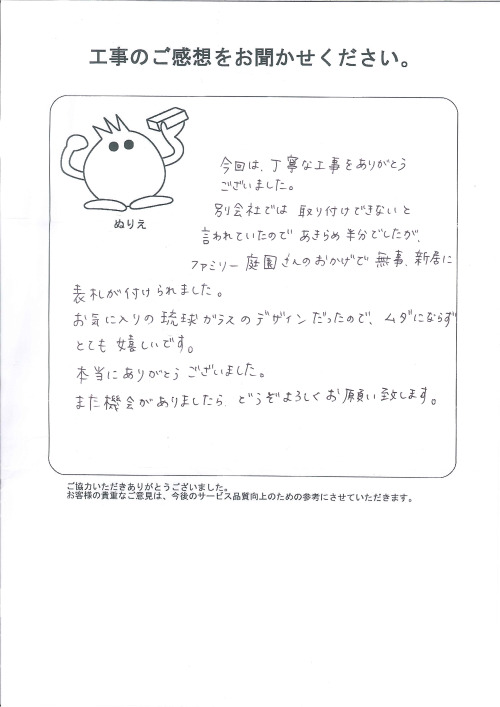 工事のご感想をお聞かせください。
ぬりえ
今回は、丁寧な工事をありがとう
ございました。
別会社では 取り付けできないと
言われていたので あきらめ半分でしたが、
ファミリー庭園さんのおかげで 無事、新居に
表札が付けられました。
お気に入りの琉球ガラスのデザインだったので、ムダにならず
とても嬉しいです。
本当にありがとうございました。
また機会がありましたら、どうぞよろしくお願い致します。
ご協力いただきありがとうございました。
お客様の貴重なご意見は、今後のサービス品質向上のための参考にさせていただきます。